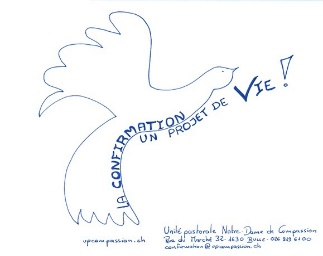 LA CONFIRMATION
UN PROJET DE VIE!
upcompassion.ch
Unité pastorale Notre-Dame de Compassion
Rue du Marché 32 - 1630 BULLE - 026 919 61 00
confirmation@upcompassion.ch